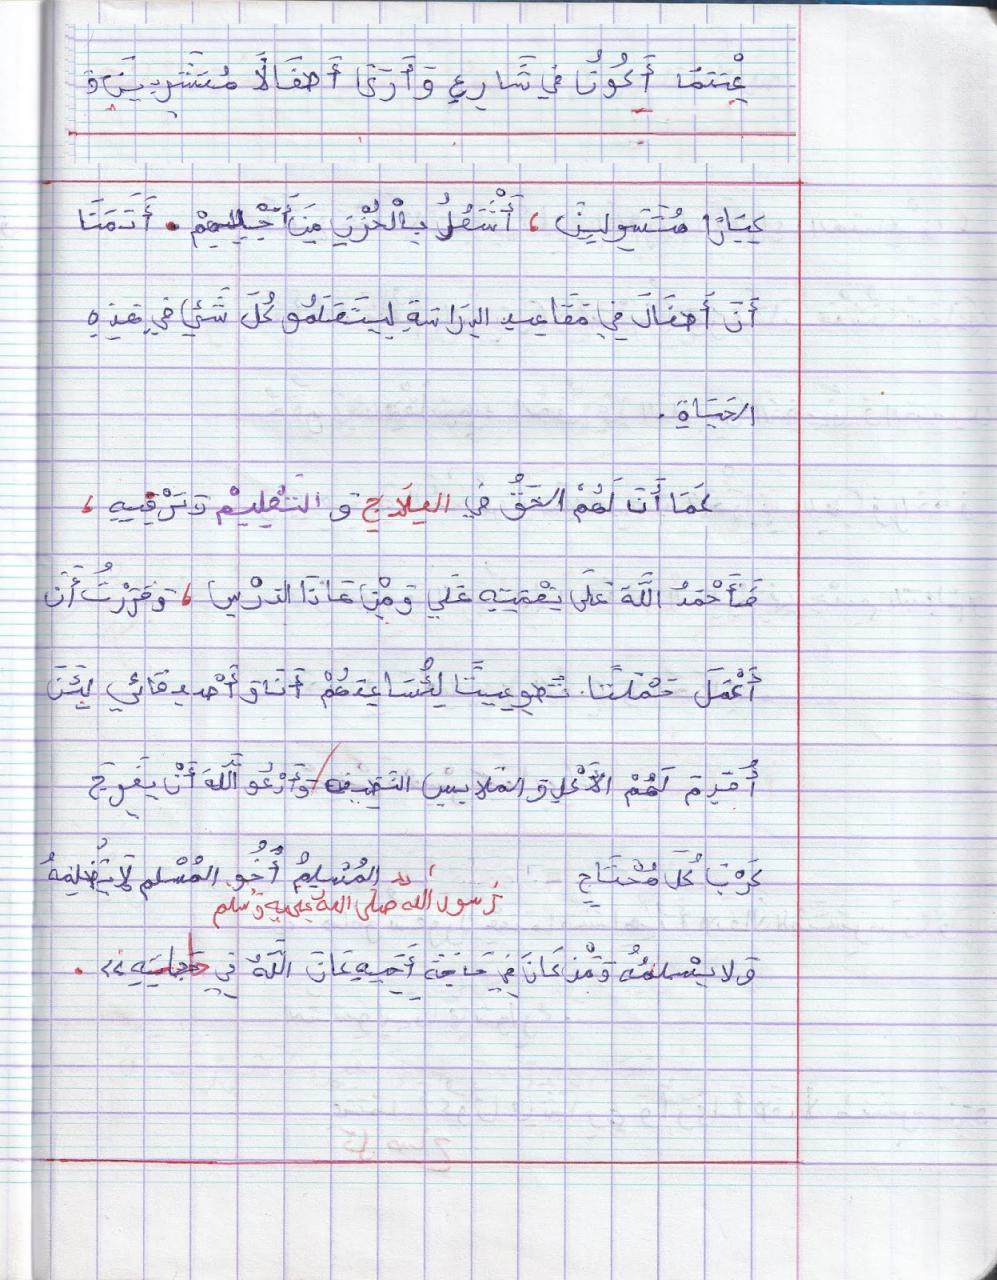 عِنْتَمَا أَكُونُ فِي شَارِعٍ وَأَرَى أَطْفَالًا مُتَشَرِدِينَ وَ
كِبَارًا مُتَسَوِلِينَ ، أَشْعُلُ بِالْحُزْنِ مِنَ أَجْلِهِمْ . أَتَمَنَّا
أَنَ أَطفَالَ فِي مَقَاعِدِ الدِرَاسَةِ لِيَتَعَلَمُو كُلَ شَيْئٍ فِي هَذِهِ
الحَيَاةِ .
كَمَا أَنَ لَهُمْ الحَقُّ فِي العِلَاجِ وَ التَعْلِيمْ وَتَرْفِيهِ ،
فَأَحْمَدُ اللَّهَ عَلَى نِعْمَتِهِ عَلَي وَمِنْ هَاذَا الدَرْسِ ، وَقَرَرْتُ أَن
أَعْمَلَ حَمْلَتًا تَطَوِعِيتًا لِمُسَاعِدَهُمْ أَنَا وَ أَصْدِقَائِي لِئَنَ
أُقَدِمَ لَهُمْ الأَكْلِ وَ المَلَابِسْ النَظِيفِه وَأَدْعُو اللَّهَ أَنْ يُفَرِجَ
كَرْبَ كُلَ مُحْتَاجِ ، « المُسْلِمُ أَخُو المُسْلم لَا يُظْلِمُهُ
رسول الله صلى الله عليه وسلم
وَلا يسْلِمُهُ وَمْن كَانَ فِي حَاجَةِ أَخِيهِ كَانَ اللَّهُ فِي حَاجَتِهِ » .